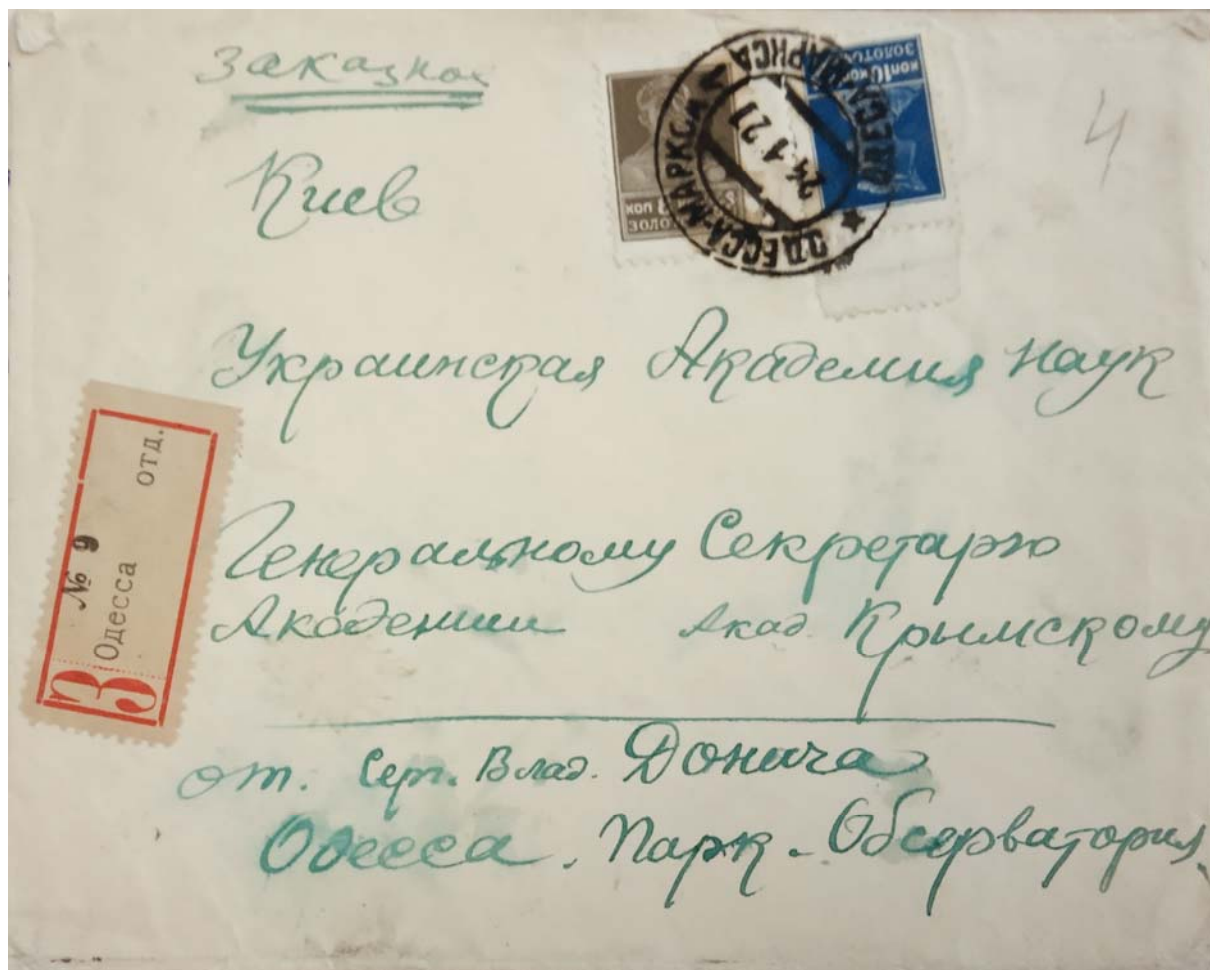 заказное
Киев
коп 8
золот
коп 10 коп
золотом
ОДЕССА-МАРКСА
ОДЕССА-МАРКСА
24.1.27
4
Украинская Академия Наук
№ 9
Одесса отд.
З
Генеральному Секретарю
Академии Акад. Крымскому
от. Сер. Влад. Донича
Одесса. Парк - Обсерватория